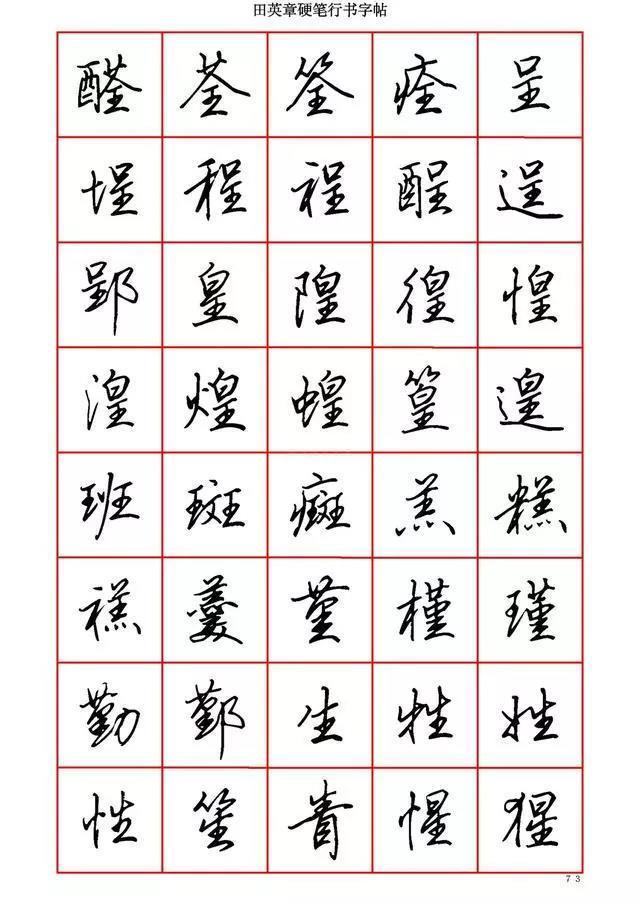 田英章硬笔行书字帖
醛荃筌痊呈
埕程裎酲逞
郢皇隍徨惶
湟煌蝗篁遑
班斑癍羔糕
禚羹堇槿瑾
勤鄞生牲姓
性笙眚惺猩
73